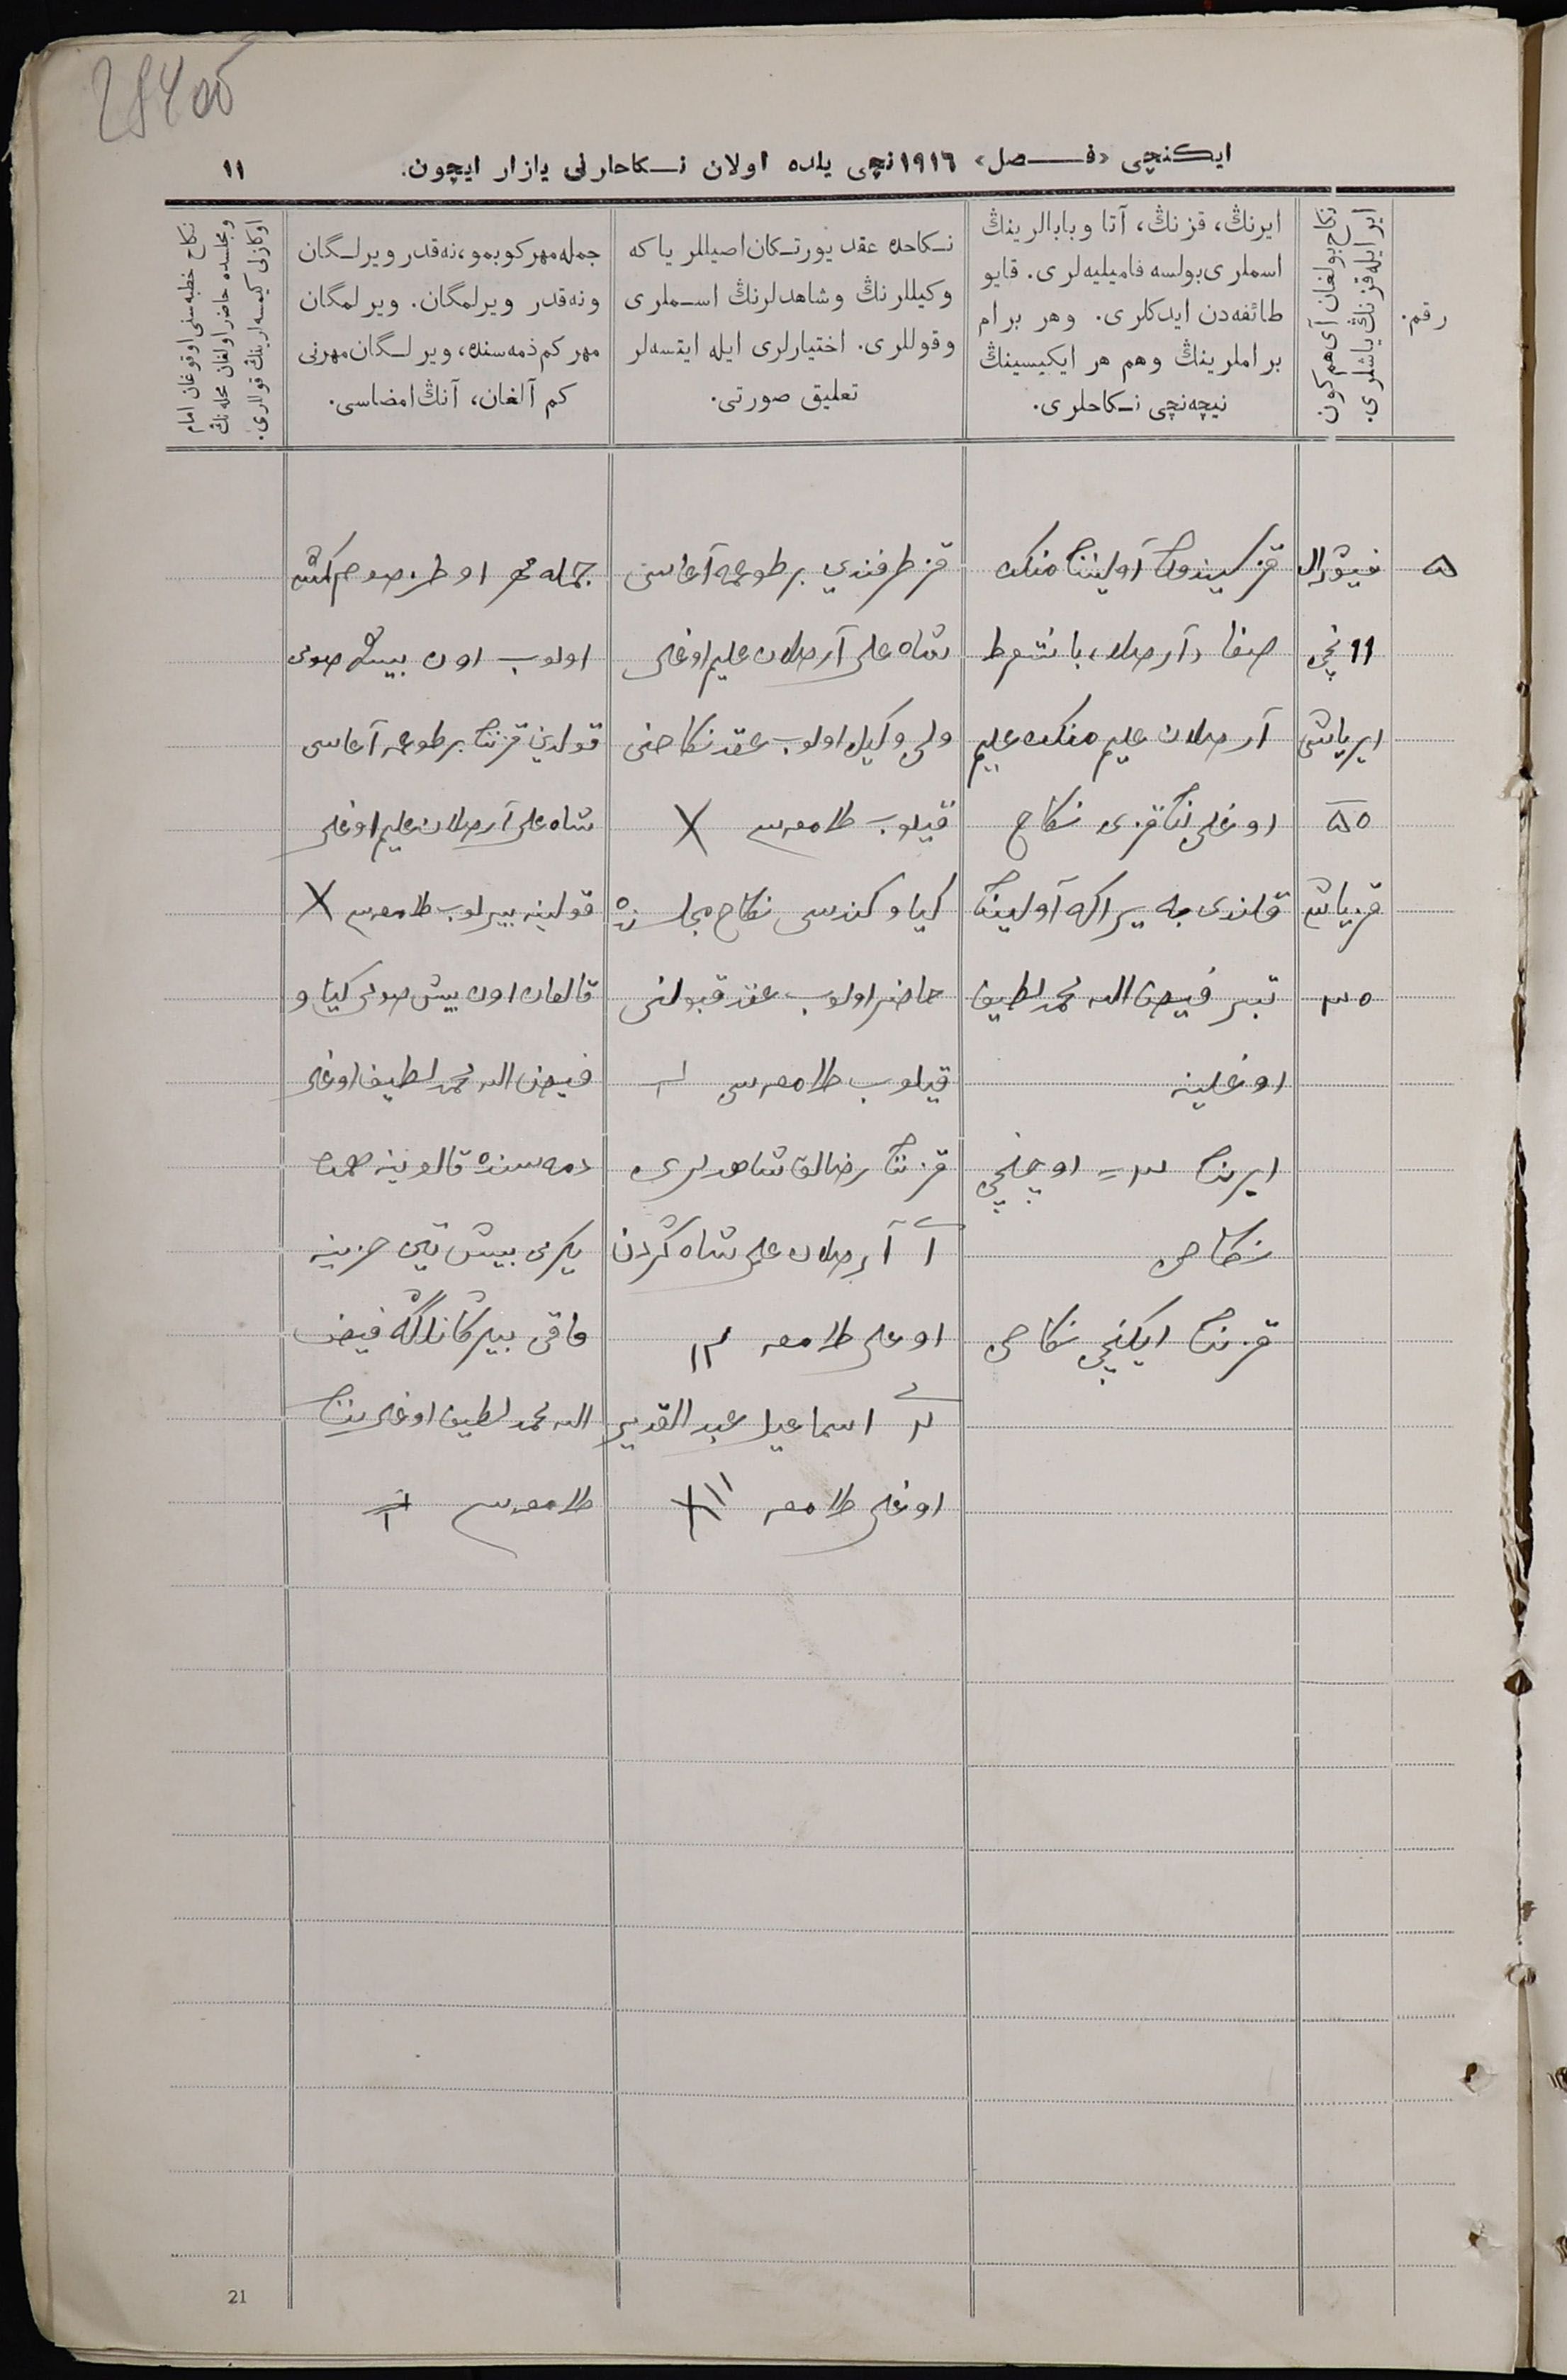 ایکنچی «فصل» ١٩١٦نچی یلده اولان نکاحلرنی یازار ایچون.
١١
رقم.
نکاح بولغان آی هم کون
ایر ایله قزنڭ یاشلری.
ایرنڭ، قزنڭ، آتا و بابالرینڭ
اسملری بولسه فامیلیه‌لری. قایو
طائفه‌دن ایدکلری. وهر برام
براملرینڭ وهم هر ایکیسینڭ
نیچه‌نچی نکاحلری.
نکاحده عقد یورتکان اصیللر یا که
وکیللرنڭ و شاهدلرنڭ اسملری
و قوللری. اختیارلری ایله ایتسه‌لر
تعلیق صورتی.
جمله مهر کوبمو، نه‌قدر ویرلگان
و نه‌قدر ویرلمگان. ویرلمگان
مهر کم ذمه‌سنده، ویرلگان مهرنی
کم آلغان، آنڭ امضاسی.
نکاح خطبه‌سنی اوقوغان امام
و مجلسده حاضر اولغان محله‌نڭ
اوکازلی کیمسه‌لرینڭ قوللری.
۵
فیورال
11 نچی
ایر یاشی
۵۵
قز یاشی
۳۵
قز آولیننڭ منک
آرصلان علیم منک علیم
اوغلی ننڭ قزی نکاح
قلندی آولیننڭ
فیض الله محمد لطیف
اوغلینه
ایرننڭ ۳ = اوچنچی
نکاحی
قزننڭ ایکنچی نکاحی
قز طرفندن بر طوغمه آغاسی
شاه علی آرصلان علیم اوغلی
ولی وکیل اولوب عقد نکاحنی
قیلوب طامغه‌سی X
کیاو کندسی نکاح مجلسنده
حاضر اولوب عقد قبولنی
قیلوب طامغه‌سی
قزننڭ رضالق شاهدلری
١ آرصلان علی شاه
اوغلی طامغه
٢ اسماعیل عبد القدیر
اوغلی طامغه
جمله مهر اوطز صوم
اولوب اون بیش صومی
قولدن قزننڭ بر طوغمه آغاسی
شاه علی آرصلان علیم اوغلی
قولینه بیرلوب طامغه‌سی X
قالغان اون بیش صومی کیاو
فیض الله محمد لطیف اوغلی
ذمه‌سنده قالوینه هم
یکرمی بیش تین خزینه
حاقی بیرکانلگه فیض
الله محمد لطیف اوغلی ننڭ
طامغه‌سی
21